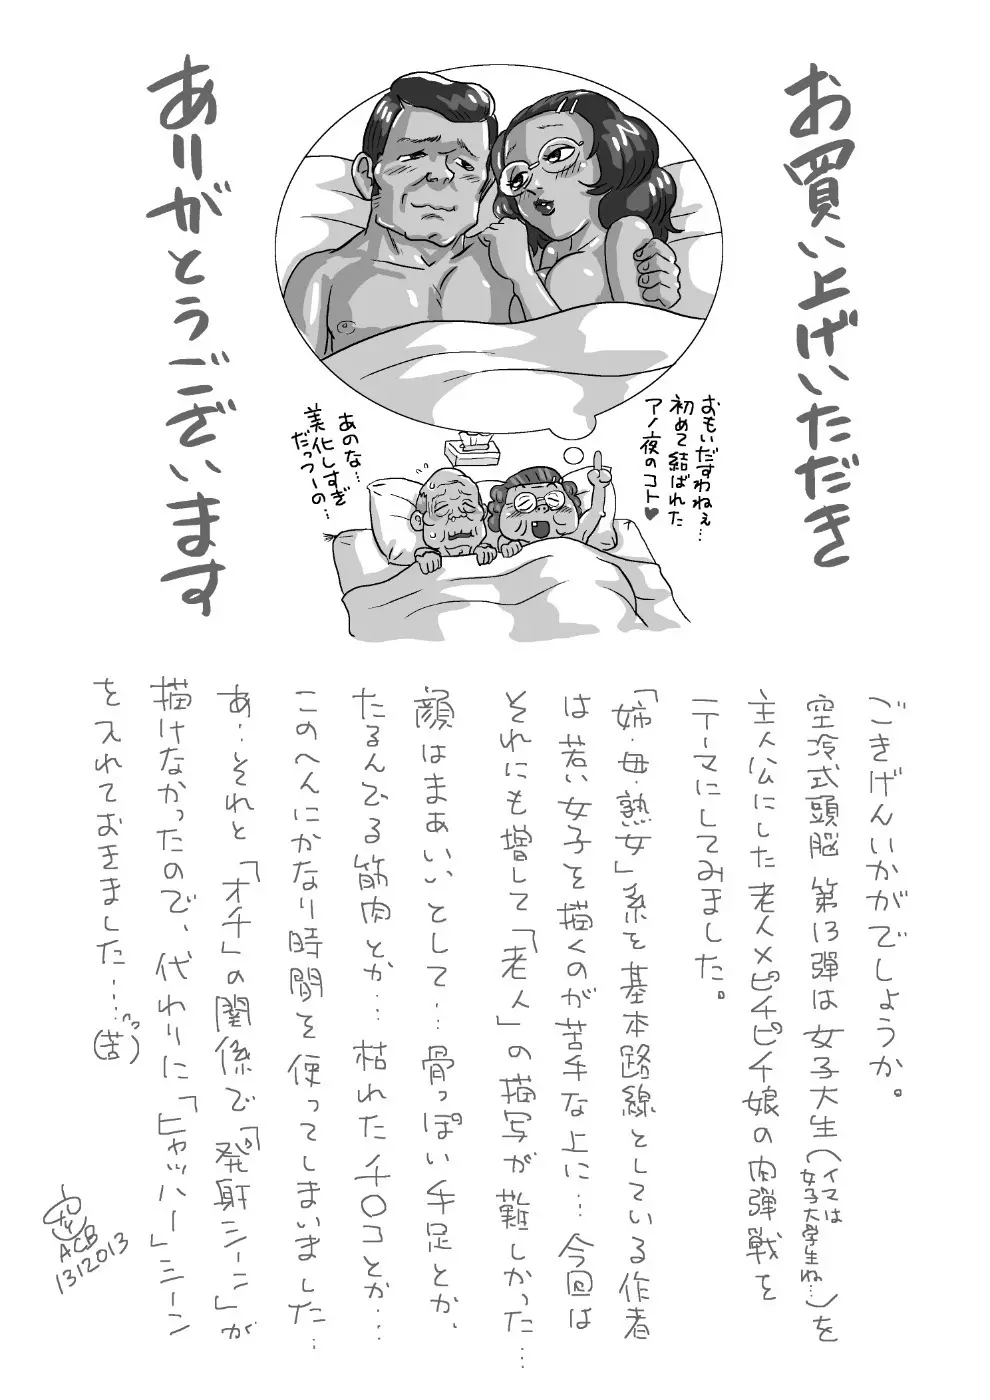 お買い上げいただき
ありがとうございます
おもいだすわねぇ…
初めて結ばれた
アノ夜のコト♥
あのな…
美化しすぎ
だっつーの…
ごきげんいかがでしょうか。
空冷式頭脳 第13弾は女子大生(イマは女子大学生ね…)を
主人公にした老人×ピチピチ娘の肉弾戦を
テーマにしてみました。
「姉・母・熟女」系を基本路線としている作者
は若い女子を描くのが苦手な上に…今回は
それにも増して「老人」の描写が難しかった…
顔はまぁいいとして…骨っぽい手足とか、
たるんでる筋肉とか…枯れたチ〇コとか…
このへんにかなり時間を使ってしまいました…
あ…それと「オチ」の関係で「発射シーン」が
描けなかったので、代わりに「ヒャッハー」シーン
を入れておきました…(苦)
ACB
1312013